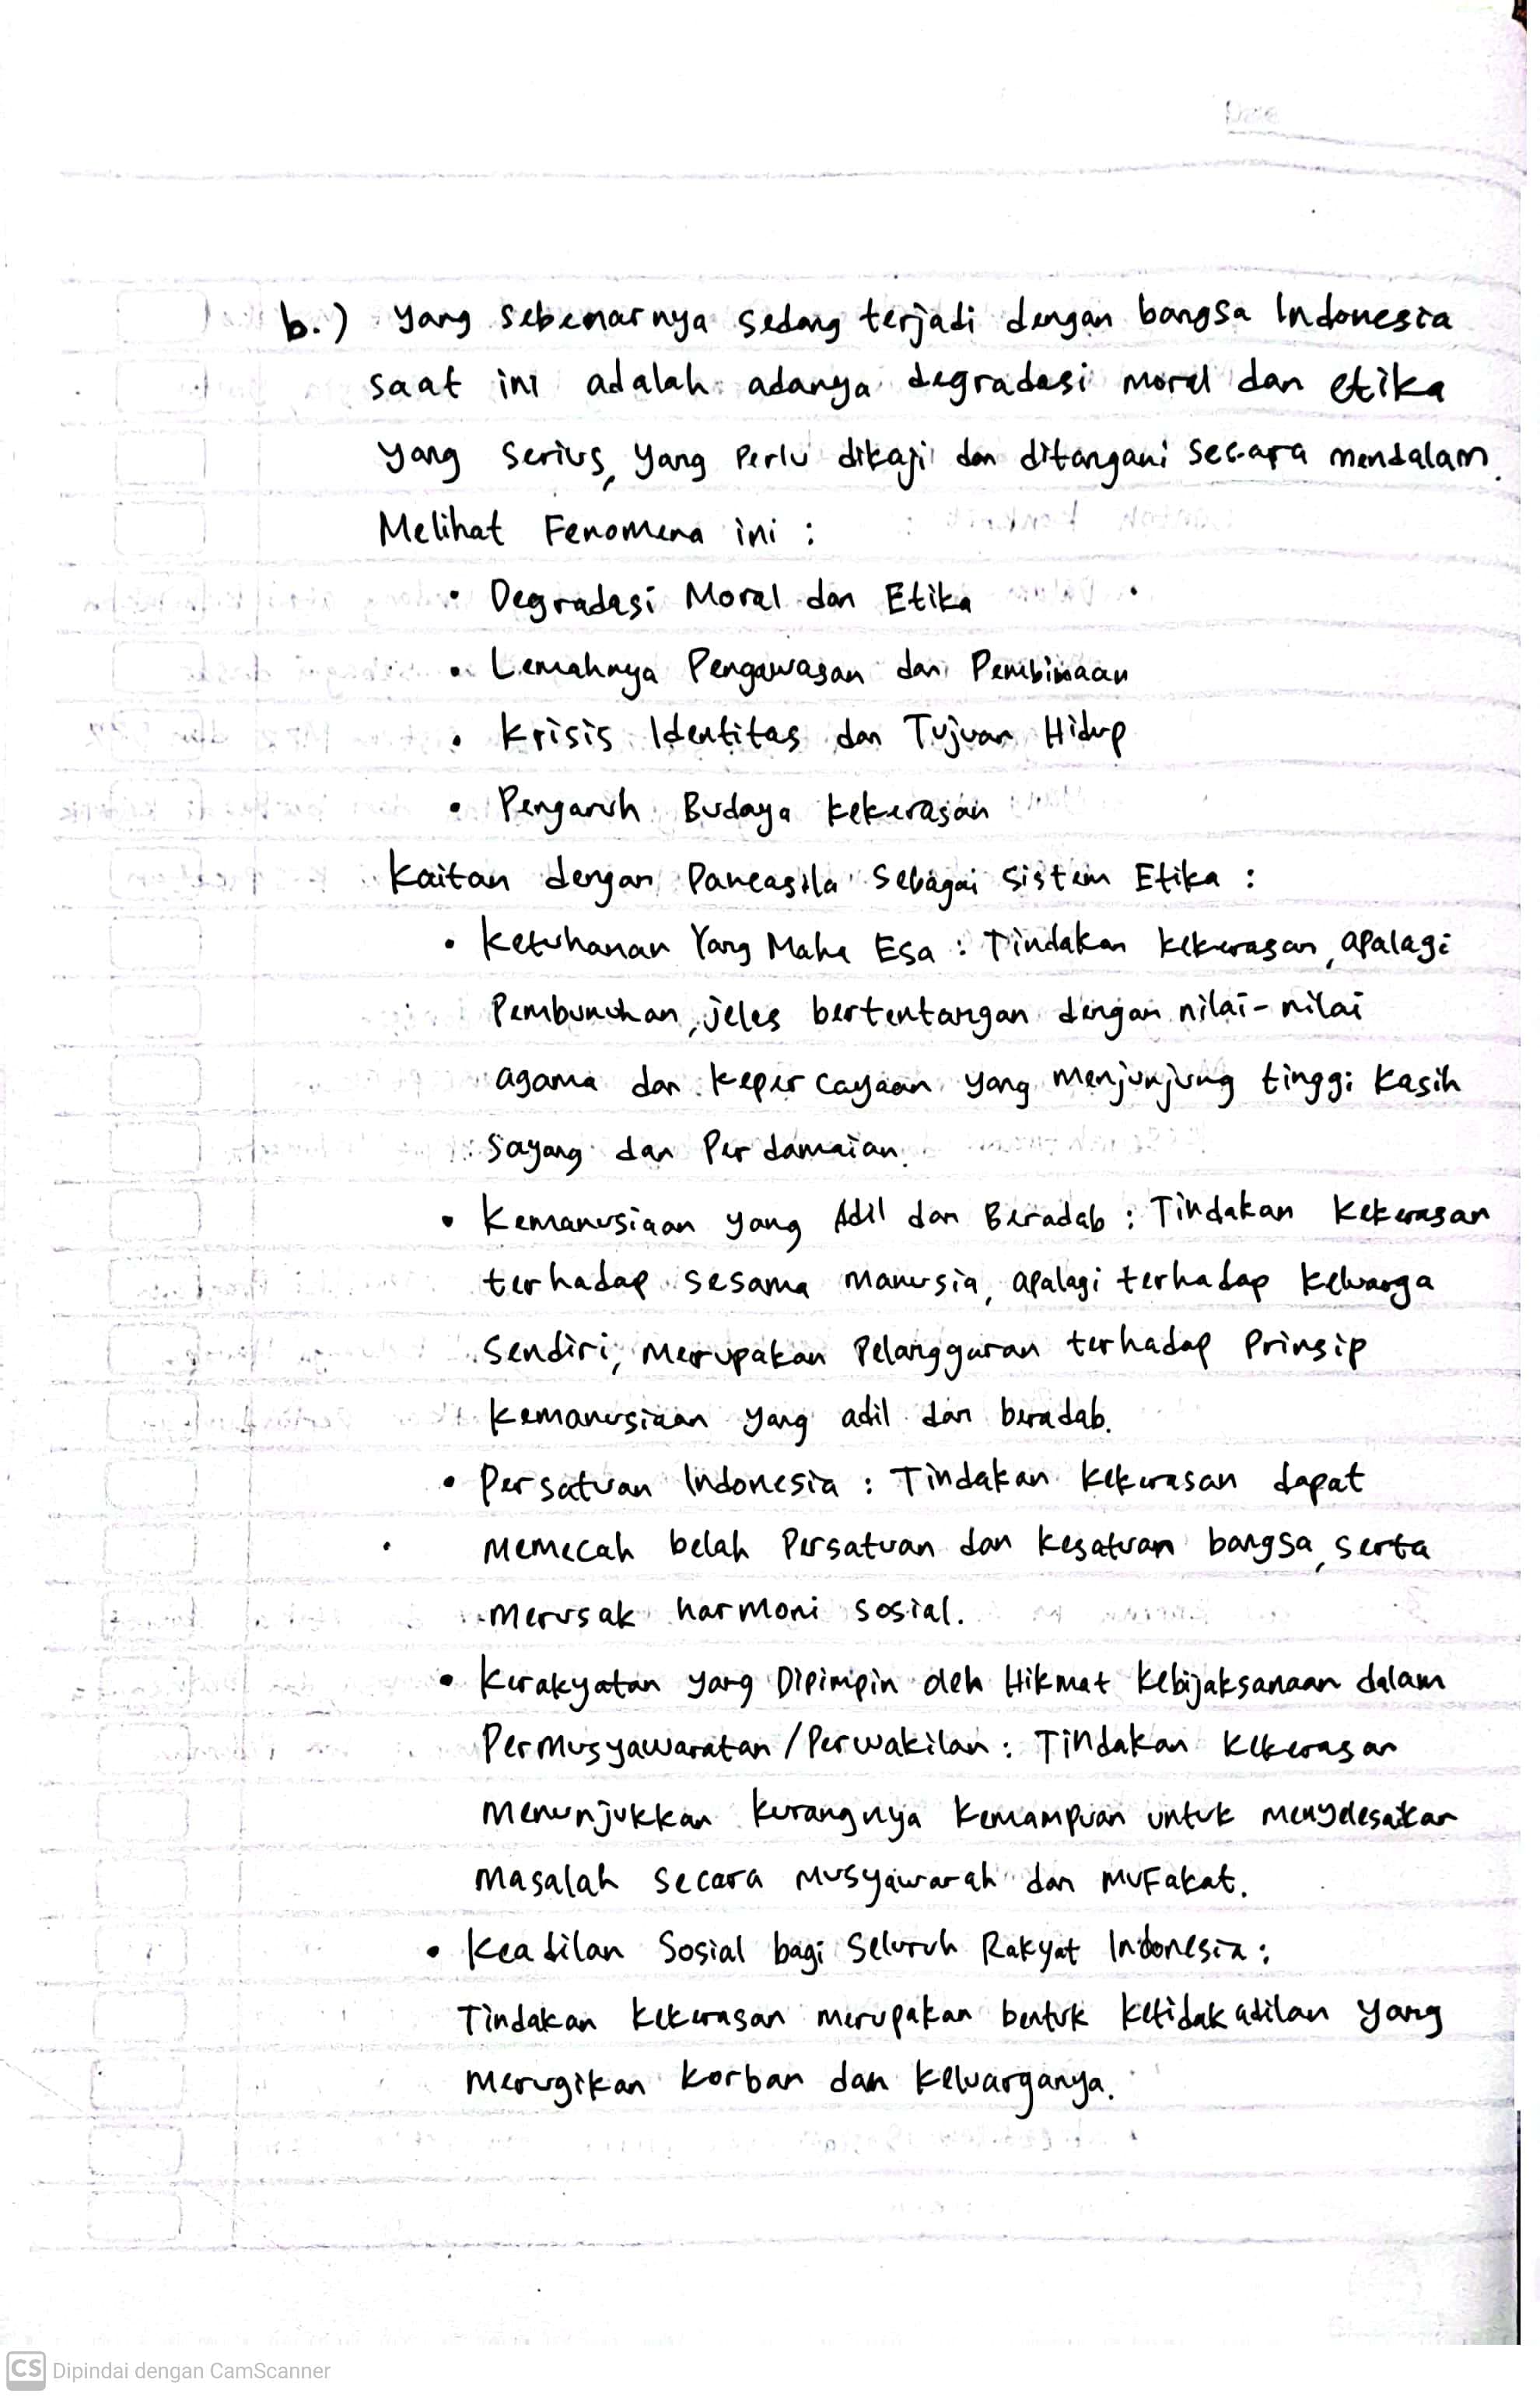 Date
b.) Yang sebenarnya sedang terjadi dengan bangsa Indonesia
saat ini adalah adanya degradasi moral dan etika
yang serius, yang perlu dikaji dan ditangani secara mendalam.
Melihat Fenomena ini :
• Degradasi Moral dan Etika
• Lemahnya Pengawasan dan Pembinaan
• Krisis Identitas dan Tujuan Hidup
• Pengaruh Budaya Kekerasan
Kaitan dengan Pancasila Sebagai Sistem Etika :
• Ketuhanan Yang Maha Esa : Tindakan kekerasan, apalagi
Pembunuhan, jelas bertentangan dengan nilai-nilai
agama dan kepercayaan yang menjunjung tinggi kasih
sayang dan Perdamaian.
• Kemanusiaan yang Adil dan Beradab : Tindakan kekerasan
terhadap sesama manusia, apalagi terhadap keluarga
sendiri, merupakan Pelanggaran terhadap Prinsip
kemanusiaan yang adil dan beradab.
• Persatuan Indonesia : Tindakan kekerasan dapat
memecah belah Persatuan dan kesatuan bangsa, serta
merusak harmoni sosial.
• Kerakyatan yang Dipimpin oleh Hikmat Kebijaksanaan dalam
Permusyawaratan/Perwakilan : Tindakan kekerasan
menunjukkan kurangnya kemampuan untuk menyelesaikan
masalah secara musyawarah dan mufakat.
• Keadilan Sosial bagi Seluruh Rakyat Indonesia :
Tindakan kekerasan merupakan bentuk ketidakadilan yang
merugikan korban dan keluarganya.
CS Dipindai dengan CamScanner